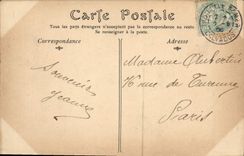 Carte Postale
Tous les pays étrangers n'acceptent pas la correspondance au recto
Se renseigner à la poste.
Correspondance
Adresse
Souvenir
Madame Aubertin
16 rue de Turenne
Paris